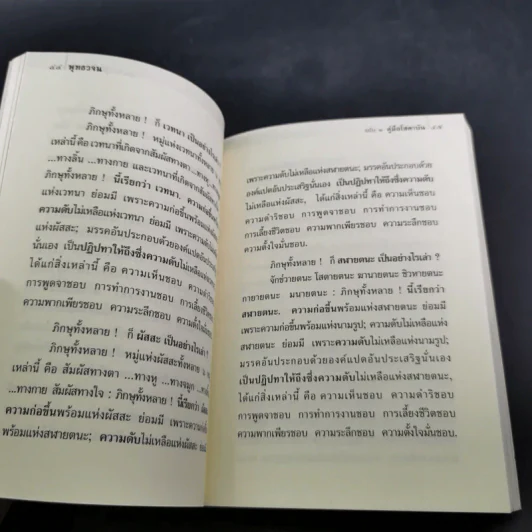 ๔๔ พุทธวจน
ภิกษุทั้งหลาย ! ก็ เวทนา เป็นอย่างไรเล่า ?
ภิกษุทั้งหลาย ! หมู่แห่งเวทนาทั้งหลาย
เหล่านี้คือ เวทนาที่เกิดจากสัมผัสทางตา
...ทางลิ้น ...ทางกาย และเวทนาที่เกิดจากสัมผัส
ภิกษุทั้งหลาย ! นี้เรียกว่า เวทนา. ความก่อขึ้น
แห่งเวทนา ย่อมมี เพราะความก่อขึ้นพร้อม
ความดับไม่เหลือแห่งเวทนา ย่อมมี เพราะ
แห่งผัสสะ; มรรคอันประกอบด้วยองค์แปดอัน
นั่นเอง เป็นปฏิปทาให้ถึงซึ่งความดับไม่เหลือ
ได้แก่สิ่งเหล่านี้ คือ ความเห็นชอบ
การพูดจาชอบ การทำการงานชอบ การเลี้ยงชีวิตชอบ
ความพากเพียรชอบ ความระลึกชอบ
ภิกษุทั้งหลาย ! ก็ ผัสสะ เป็นอย่างไรเล่า ?
ภิกษุทั้งหลาย ! หมู่แห่งผัสสะทั้งหลาย
เหล่านี้ คือ สัมผัสทางตา ...ทางหู ...ทางจมูก
...ทางกาย สัมผัสทางใจ : ภิกษุทั้งหลาย ! นี้เรียกว่า
ความก่อขึ้นพร้อมแห่งผัสสะ ย่อมมี เพราะความก่อขึ้น
พร้อมแห่งสฬายตนะ; ความดับไม่เหลือแห่งผัสสะ
คู่มือโสดาบัน
เพราะความดับไม่เหลือแห่งสฬายตนะ; มรรคอันประกอบด้วย
องค์แปดอันประเสริฐนั่นเอง เป็นปฏิปทาให้ถึงซึ่งความดับ
ไม่เหลือแห่งผัสสะ, ได้แก่สิ่งเหล่านี้ คือ ความเห็นชอบ
ความดำริชอบ การพูดจาชอบ การทำการงานชอบ
การเลี้ยงชีวิตชอบ ความพากเพียรชอบ ความระลึกชอบ
ความตั้งใจมั่นชอบ.
ภิกษุทั้งหลาย ! ก็ สฬายตนะ เป็นอย่างไรเล่า ?
จักข๎วายตนะ โสตายตนะ ฆานายตนะ ชิวหายตนะ
กายายตนะ มนายตนะ : ภิกษุทั้งหลาย ! นี้เรียกว่า
สฬายตนะ. ความก่อขึ้นพร้อมแห่งสฬายตนะ ย่อมมี
เพราะความก่อขึ้นพร้อมแห่งนามรูป; ความดับไม่เหลือแห่ง
สฬายตนะ ย่อมมี เพราะความดับไม่เหลือแห่งนามรูป;
มรรคอันประกอบด้วยองค์แปดอันประเสริฐนั่นเอง
เป็นปฏิปทาให้ถึงซึ่งความดับไม่เหลือแห่งสฬายตนะ,
ได้แก่สิ่งเหล่านี้ คือ ความเห็นชอบ ความดำริชอบ
การพูดจาชอบ การทำการงานชอบ การเลี้ยงชีวิตชอบ
ความพากเพียรชอบ ความระลึกชอบ ความตั้งใจมั่นชอบ.